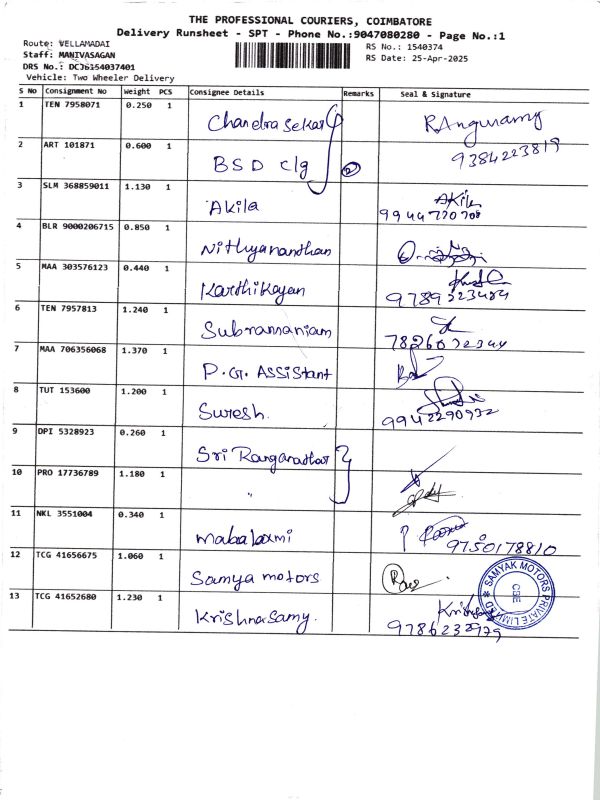 THE PROFESSIONAL COURIERS, COIMBATORE
Delivery Runsheet - SPT - Phone No.:9047080280 - Page No.:1
Route: VELLAMADAI
Staff: MANIVASAGAN
DRS No.: DCJ6154037401
Vehicle: Two Wheeler Delivery
RS No.: 1540374
RS Date: 25-Apr-2025
S No Consignment No Weight PCS Consignee Details Remarks Seal & Signature
1 TEN 7958071 0.250 1 Chandra Sekar RAnguramy
9384223819
2 ART 101871 0.600 1 BSD Clg 2
3 SLM 368859011 1.130 1 Akila Akila
9944770708
4 BLR 9000206715 0.850 1 Nithyananthan
5 MAA 303576123 0.440 1 Karthikayan
9789323484
6 TEN 7957813 1.240 1 Subramaniam
7826032344
7 MAA 706356068 1.370 1 P.G. Assistant
8 TUT 153600 1.200 1 Suresh.
9942290932
9 DPI 5328923 0.260 1 Sri Ranganathar
10 PRO 17736789 1.180 1 "
11 NKL 3551004 0.340 1 mahalaxmi
9750178810
12 TCG 41656675 1.060 1 Samya motors
SAMYAK MOTORS PRIVATE LIMITED
CBE
13 TCG 41652680 1.230 1 Krishnasamy.
9786232979